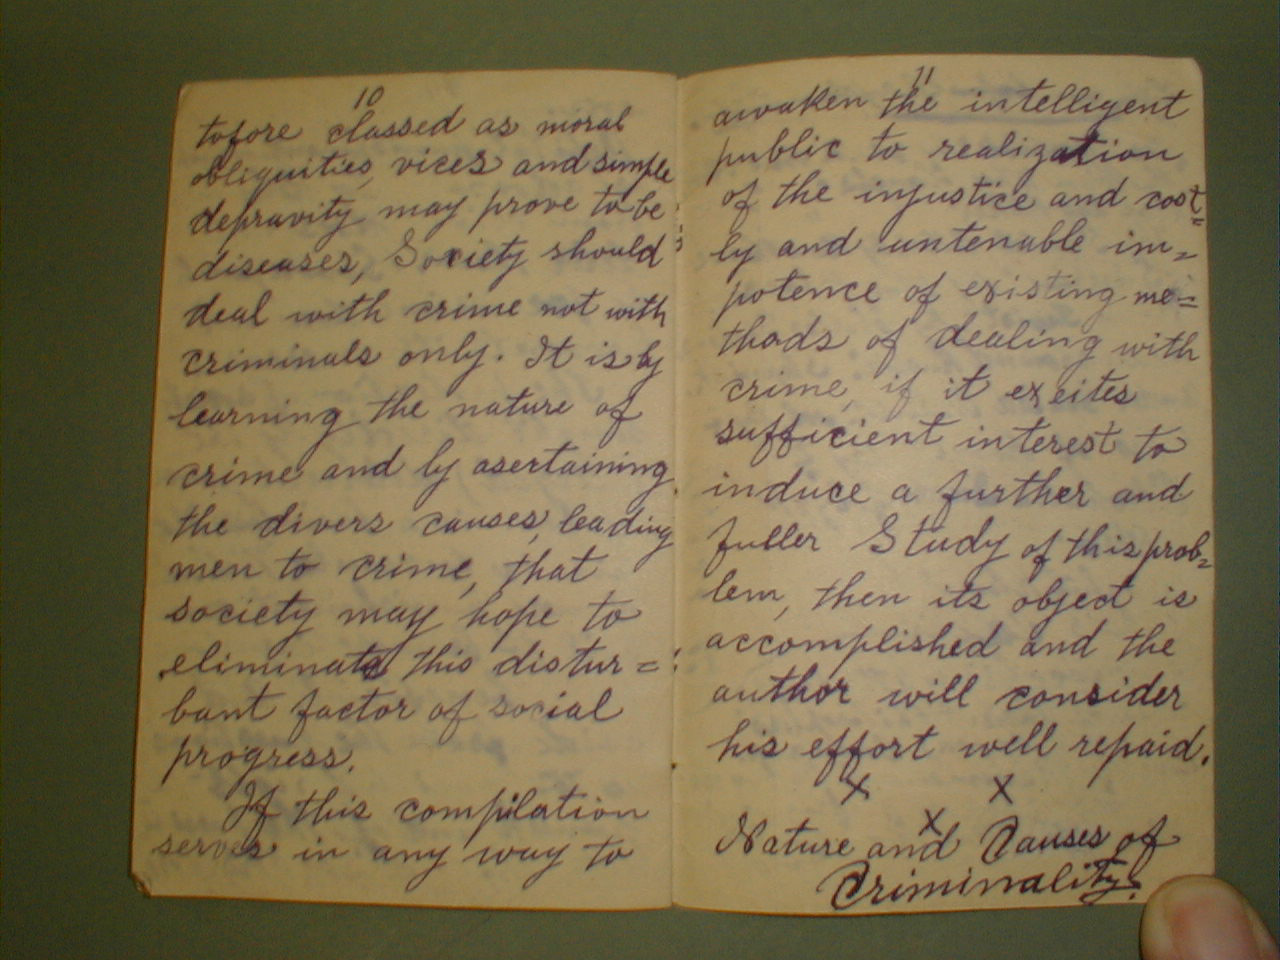 10
tofore classed as moral
obliquities, vices and simple
depravity may prove to be
diseases, Society should
deal with crime not with
criminals only. It is by
learning the nature of
crime and by asertaining
the divers causes, leading
men to crime, that
society may hope to
eliminate this distur=
bant factor of social
progress.
If this compilation
serves in any way to
11
awaken the intelligent
public to realization
of the injustice and cost=
ly and untenable im=
potence of existing me=
thods of dealing with
crime, if it exeites
sufficient interest to
induce a further and
fuller Study of this prob=
lem, then its object is
accomplished and the
author will consider
his effort well repaid.
x x
x
Nature and Causes of
Criminality.